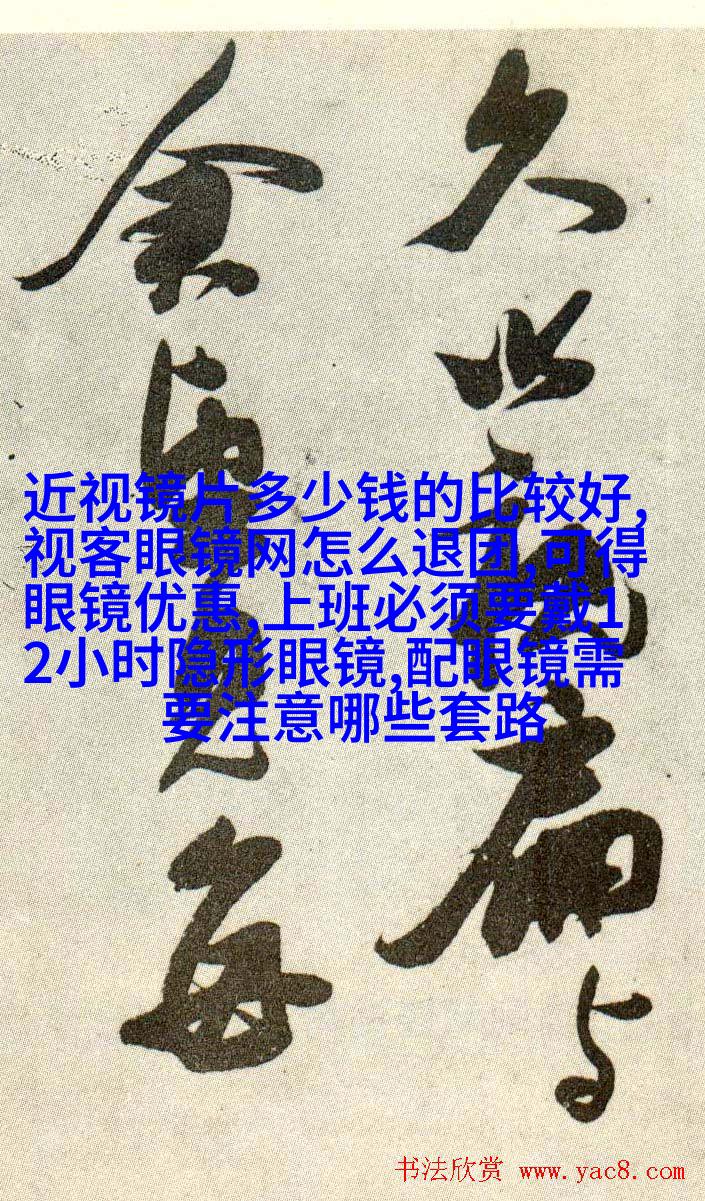 久此扁与
余每
近视镜片多少钱的比较好,
视客眼镜网怎么退团,可得
眼镜优惠,上班必须要戴1
2小时隐形眼镜,配眼镜需
要注意哪些套路
书法欣赏 www.yac8.com